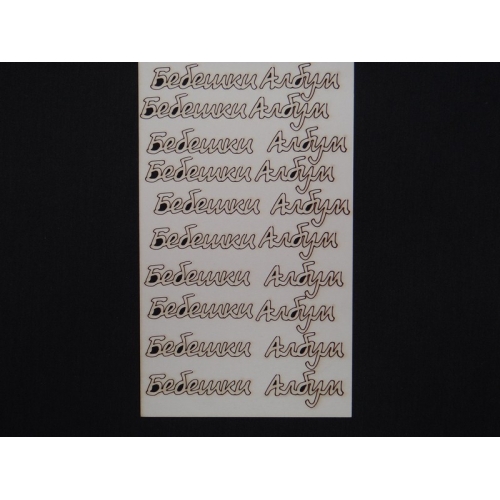 Бебешки Албум
Бебешки Албум
Бебешки Албум
Бебешки Албум
Бебешки Албум
Бебешки Албум
Бебешки Албум
Бебешки Албум
Бебешки Албум
Бебешки Албум